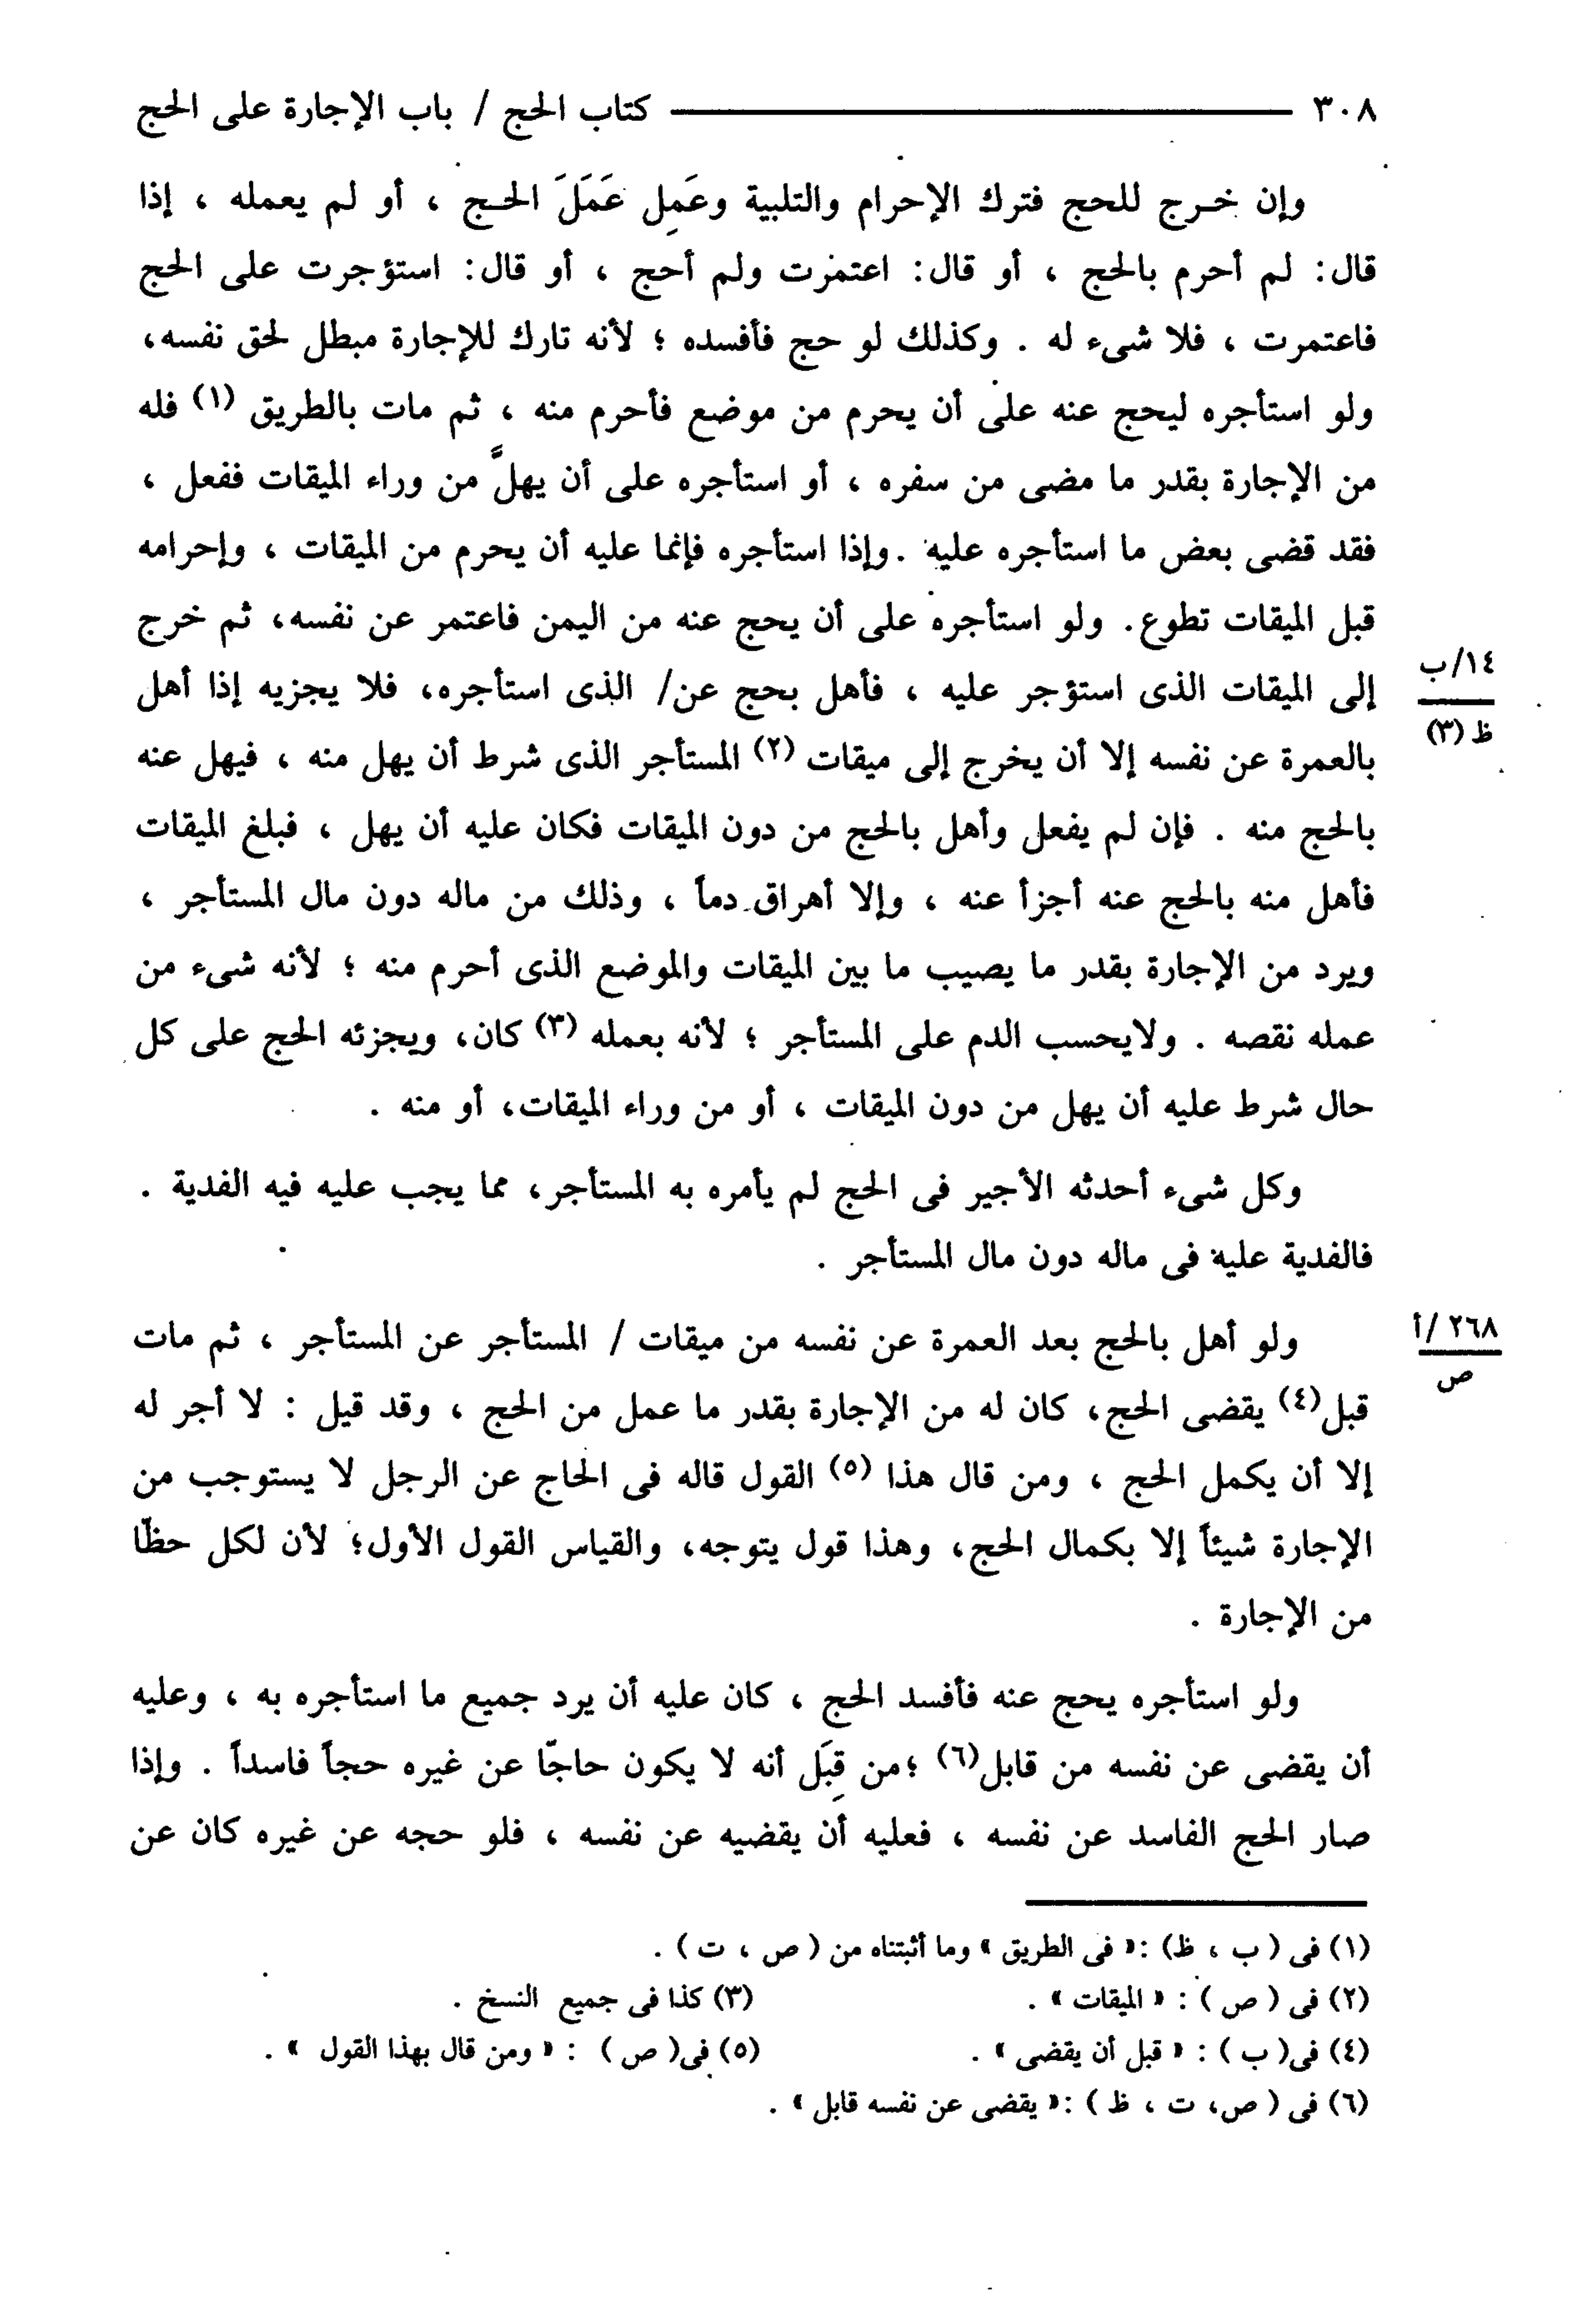 ٣٠٨ كتاب الحج / باب الإجارة على الحج
وإن خـرج للحج فترك الإحرام والتلبية وعَمِل عَمَلَ الحـج ، أو لم يعمله ، إذا
قال: لم أحرم بالحج ، أو قال: اعتمرت ولم أحج ، أو قال: استؤجرت على الحج
فاعتمرت ، فلا شىء له . وكذلك لو حج فأفسده ؛ لأنه تارك للإجارة مبطل لحق نفسه،
ولو استأجره ليحج عنه على أن يحرم من موضع فأحرم منه ، ثم مات بالطريق (١) فله
من الإجارة بقدر ما مضى من سفره ، أو استأجره على أن يهلَّ من وراء الميقات ففعل ،
فقد قضى بعض ما استأجره عليه .وإذا استأجره فإنما عليه أن يحرم من الميقات ، وإحرامه
قبل الميقات تطوع. ولو استأجره على أن يحج عنه من اليمن فاعتمر عن نفسه، ثم خرج
١٤/ب
إلى الميقات الذى استؤجر عليه ، فأهل بحج عن/ الذى استأجره، فلا يجزيه إذا أهل
ظ (٣)
بالعمرة عن نفسه إلا أن يخرج إلى ميقات (٢) المستأجر الذى شرط أن يهل منه ، فيهل عنه
بالحج منه . فإن لم يفعل وأهل بالحج من دون الميقات فكان عليه أن يهل ، فبلغ الميقات
فأهل منه بالحج عنه أجزأ عنه ، وإلا أهراق دماً ، وذلك من ماله دون مال المستأجر ،
ويرد من الإجارة بقدر ما يصيب ما بين الميقات والموضع الذى أحرم منه ؛ لأنه شىء من
عمله نقصه . ولايحسب الدم على المستأجر ؛ لأنه بعمله (٣) كان، ويجزئه الحج على كل
حال شرط عليه أن يهل من دون الميقات ، أو من وراء الميقات، أو منه .
وكل شىء أحدثه الأجير فى الحج لم يأمره به المستأجر، مما يجب عليه فيه الفدية .
فالفدية عليه فى ماله دون مال المستأجر .
ولو أهل بالحج بعد العمرة عن نفسه من ميقات / المستأجر عن المستأجر ، ثم مات
٢٦٨ /أ
ص
قبل(٤) يقضى الحج، كان له من الإجارة بقدر ما عمل من الحج ، وقد قيل : لا أجر له
إلا أن يكمل الحج ، ومن قال هذا (٥) القول قاله فى الحاج عن الرجل لا يستوجب من
الإجارة شيئاً إلا بكمال الحج، وهذا قول يتوجه، والقياس القول الأول؛ لأن لكل حظّا
من الإجارة .
ولو استأجره يحج عنه فأفسد الحج ، كان عليه أن يرد جميع ما استأجره به ، وعليه
أن يقضى عن نفسه من قابل(٦) ؛من قِبَل أنه لا يكون حاجّا عن غيره حجاً فاسداً . وإذا
صار الحج الفاسد عن نفسه ، فعليه أن يقضيه عن نفسه ، فلو حجه عن غيره كان عن
(١) فى ( ب ، ظ) :« فى الطريق » وما أثبتناه من ( ص ، ت ) .
(٢) فى ( ص ) : « الميقات » . (٣) كذا فى جميع النسخ .
(٤) فى( ب ) : « قبل أن يقضى » . (٥) فى( ص ) : « ومن قال بهذا القول » .
(٦) فى ( ص، ت ، ظ ) :« يقضى عن نفسه قابل » .